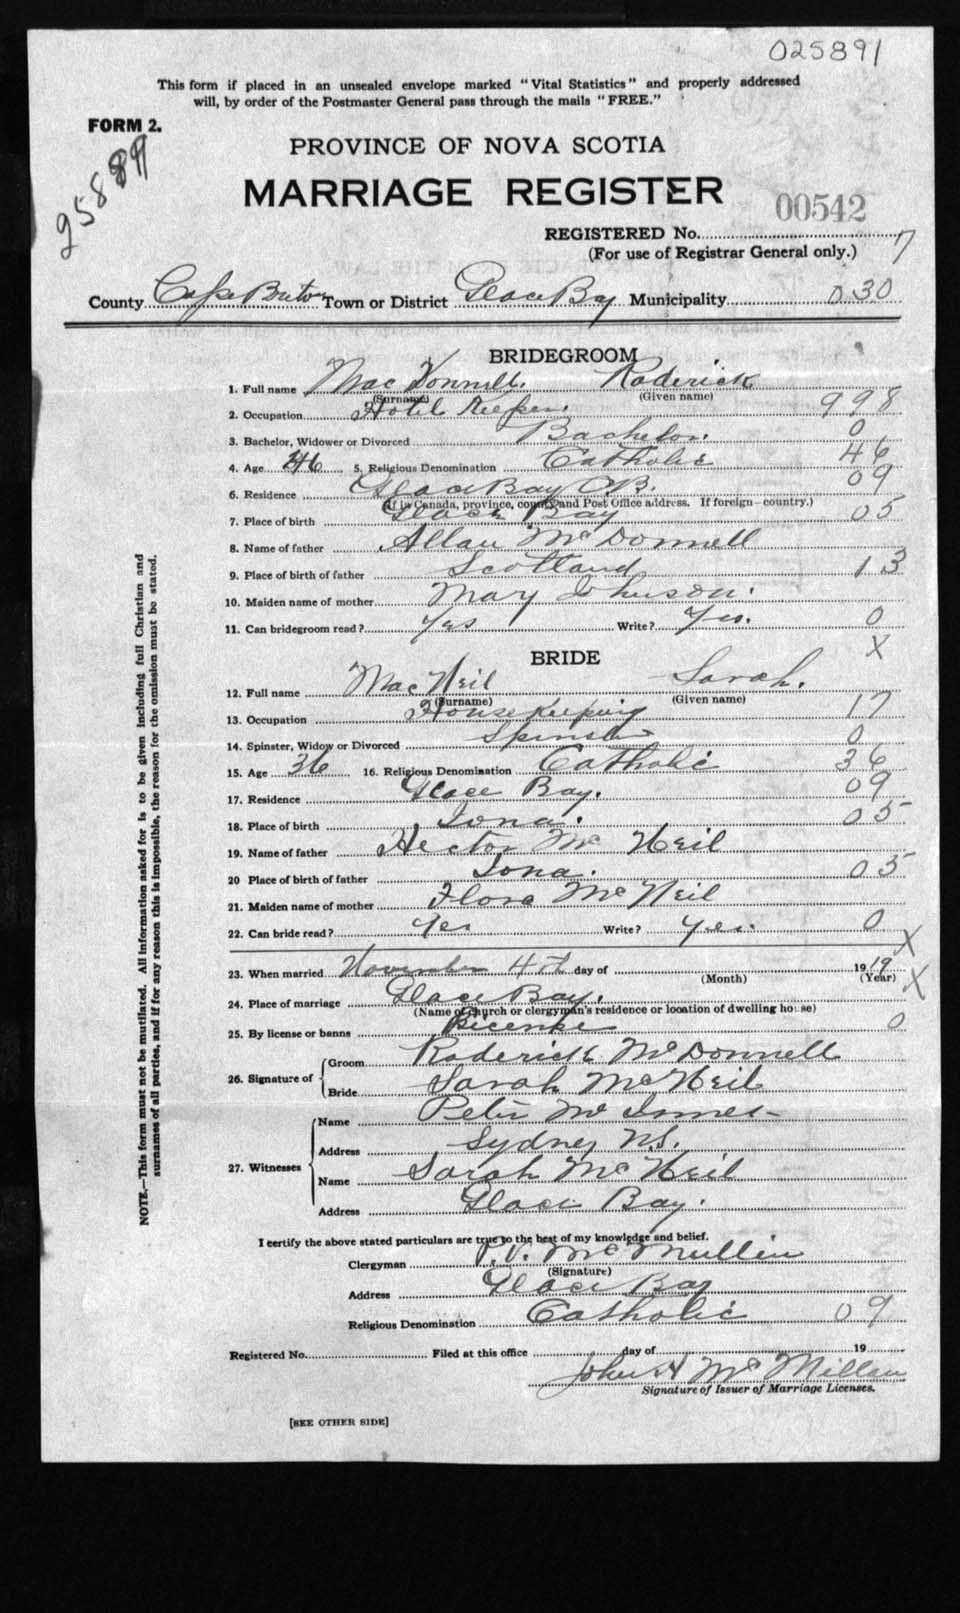 025891
This form if placed in an unsealed envelope marked "Vital Statistics" and properly addressed
will, by order of the Postmaster General pass through the mails "FREE."
FORM 2.
PROVINCE OF NOVA SCOTIA
MARRIAGE REGISTER
00542
REGISTERED No. 7
(For use of Registrar General only.)
County Cape Breton Town or District Glace Bay Municipality 030
BRIDEGROOM
1. Full name MacDonnell. Roderick
(Surname) (Given name)
2. Occupation Hotel Keeper. 998
3. Bachelor, Widower or Divorced Bachelor. 0
4. Age 46 5. Religious Denomination Catholic 46
6. Residence Glace Bay C.B. 09
(If in Canada, province, county and Post Office address. If foreign—country.)
7. Place of birth Glace Bay 05
8. Name of father Allan McDonnell
9. Place of birth of father Scotland 13
10. Maiden name of mother Mary Johnson.
11. Can bridegroom read? Yes Write? Yes. 0
X
BRIDE
12. Full name MacNeil Sarah.
(Surname) (Given name)
13. Occupation Housekeeping 17
14. Spinster, Widow or Divorced Spinster 0
15. Age 36 16. Religious Denomination Catholic 36
17. Residence Glace Bay. 09
18. Place of birth Iona. 05
19. Name of father Hector McNeil
20 Place of birth of father Iona. 05
21. Maiden name of mother Flora McNeil
22. Can bride read? Yes Write? Yes. 0
X
23. When married November 4th day of 1919
(Month) (Year) X
24. Place of marriage Glace Bay.
(Name of church or clergyman's residence or location of dwelling house)
25. By license or banns License 0
26. Signature of Groom Roderick McDonnell
Bride Sarah McNeil
27. Witnesses Name Peter McInnes
Address Sydney N.S.
Name Sarah McNeil
Address Glace Bay.
I certify the above stated particulars are true to the best of my knowledge and belief.
Clergyman P. V. McMullin
(Signature)
Address Glace Bay
Religious Denomination Catholic 09
Registered No. Filed at this office day of 19
John A McMillan
Signature of Issuer of Marriage Licenses.
[SEE OTHER SIDE]
NOTE.—This form must not be mutilated. All information asked for is to be given including full Christian and
surnames of all parties, and if for any reason this is impossible, the reason for the omission must be stated.